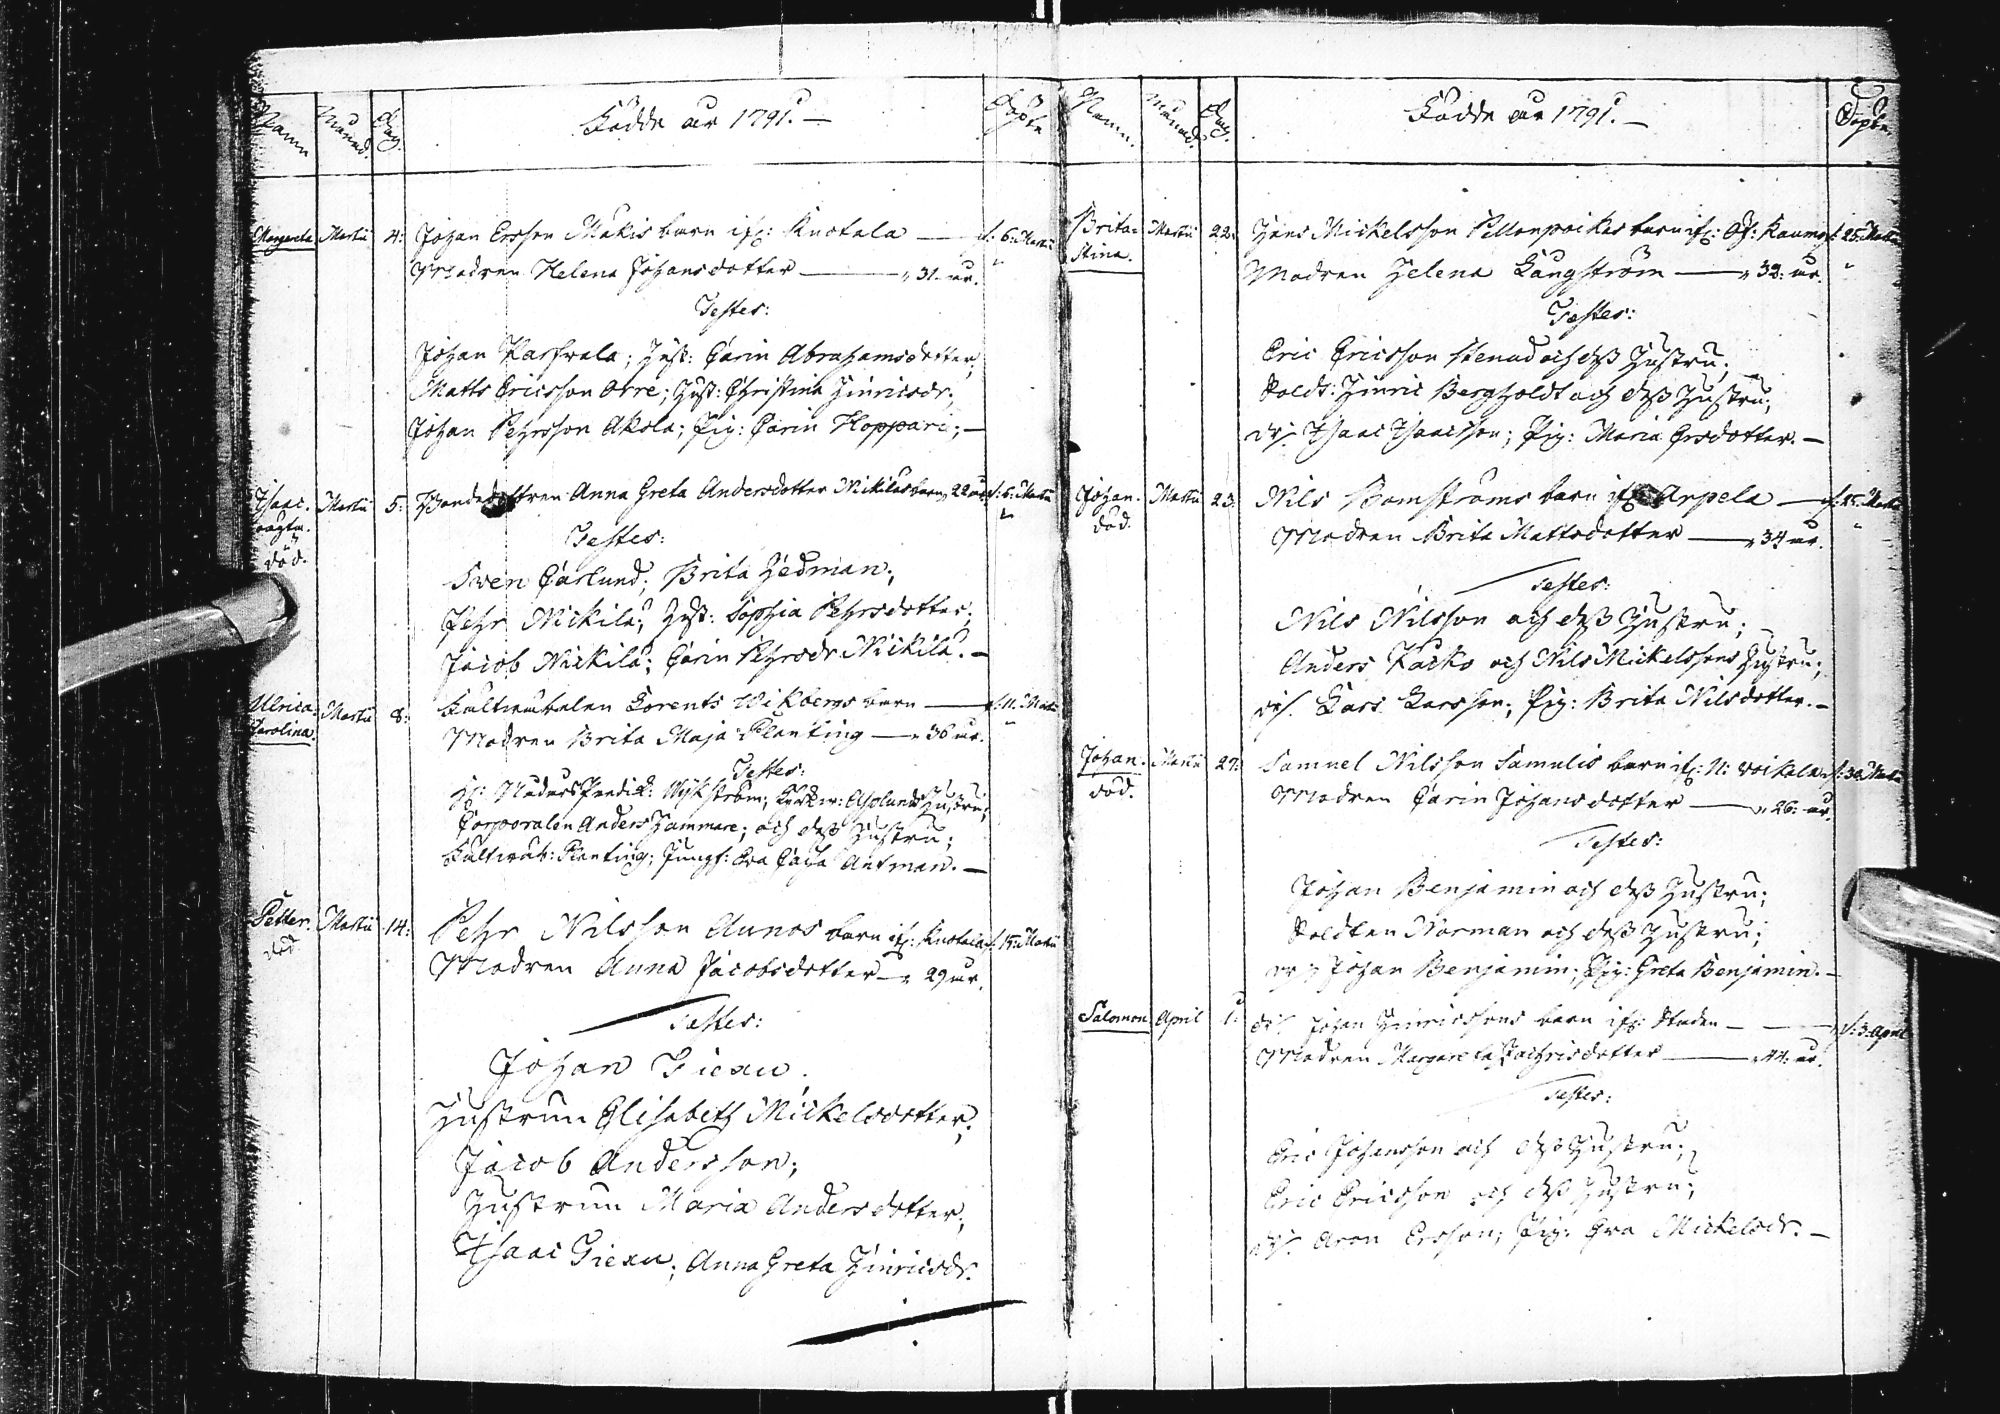 Namn
Månad.
Dag.
Födde åhr 1791. —
Döpte
Margareta
Martii
4:
Johan Ersson Mäkis barn ifr: Knotala — d: 6: Martii
Modren Helena Johansdotter — „ 31. år.
Testes:
Johan Karfvala; Hust: Carin Abrahamsdotter;
Matts Ericsson Orre; Hust: Christina Hinricsdr;
Johan Pehrsson Akola; Pig: Carin Hoppari; —
Isaac.
oägta.
död.
Martii
5:
Bondedottren Anna Greta Andersdotter Nickilas barn, 22 år d: 6: Martii
Testes:
Sven Carlund; Brita Hedman;
Pehr Nickilä; Hust: Sophia Pehrsdotter;
Jacob Nickilä; Carin Pehrsdr Nickilä. —
Ulrica
Carolina.
Martii
8:
Lorents Wikbergs barn — d: 11: Martii
Modren Brita Maja Planting — „ 36 år.
Testes:
Wykström; Asplunds Hustru;
Corporalen Anders Hammare; och dess Hustru;
Planting; Jungf: Eva Caisa Antman. —
Petter.
död
Martii
14:
Pehr Nilsson Aunos barn ifr: Knotala d: 15: Martii
Modren Anna Jacobsdotter — „ 29 år.
Testes:
Johan Siexu.
Hustrun Elisabeth Mickelsdotter;
Jacob Andersson;
Hustrun Maria Andersdotter;
Isaac Siexu; Anna Greta Hinricsdr.
Namn.
Månad.
Dag.
Födde åhr 1791. —
Döpte
Brita
Stina.
Martii
22:
Hans Mickelsson Pellonpoikas barn ifr: Öf: Raumo d: 25: Martii
Modren Helena Långström — „ 32: år.
Testes:
Eric Ericsson Stenud och dess Hustru;
Soldt: Hinric Bergholdt och dess Hustru;
dr: Isaac Isaacsson; Pig: Maria Ersdotter. —
Johan.
död.
Martii
23.
Nils Bomströms barn ifr: Arpela — d: 25: Martii
Modren Brita Mattsdotter — „ 34 år.
Testes:
Nils Nilsson och dess Hustru;
Anders Kacko och Nils Mickelssons Hustru;
dr: Lars Larsson; Pig: Brita Nilsdotter. —
Johan.
död.
Martii
27:
Samuel Nilsson Samulis barn ifr: N: Voikala d: 30: Martii
Modren Carin Johansdotter — „ 26: år.
Testes:
Johan Benjamin och dess Hustru;
Soldten Norman och dess Hustru;
dr: Johan Benjamin; Pig: Greta Benjamin. —
Salomon
April
1:
dr: Johan Hinricssons barn ifr: Staden — d: 3: April
Modren Margareta Zachrisdotter — „ 44: år.
Testes:
Eric Johansson och dess Hustru;
Eric Ericsson och dess Hustru;
dr: Aron Ersson; Pig: Eva Mickelsdr. —